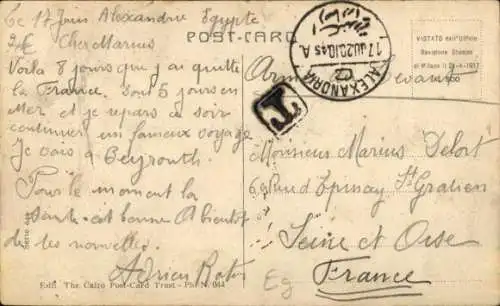 Le 17 Juin Alexandrie Egypte
Cher Marius
POST-CARD
Voila 8 jours que j'ai quitté
la France. dont 5 jours en
Mer et je repars ce soir
continuer un fameux voyage
Je vais à Beyrouth.
Pour le moment la
Santé est bonne A bientot
de tes nouvelles.
Adrien
Serie
Edit. The Cairo Post-Card Trust - Ph. N. 644
VISTATO dall'Ufficio
Revisione Stampa
di Milano il
ALEXANDRIA
17 JU 20 10 45 A
T
Armée Levant
Monsieur Marius Delort
69 Rue d'Epinay St Gratien
Seine et Oise
France
Eg